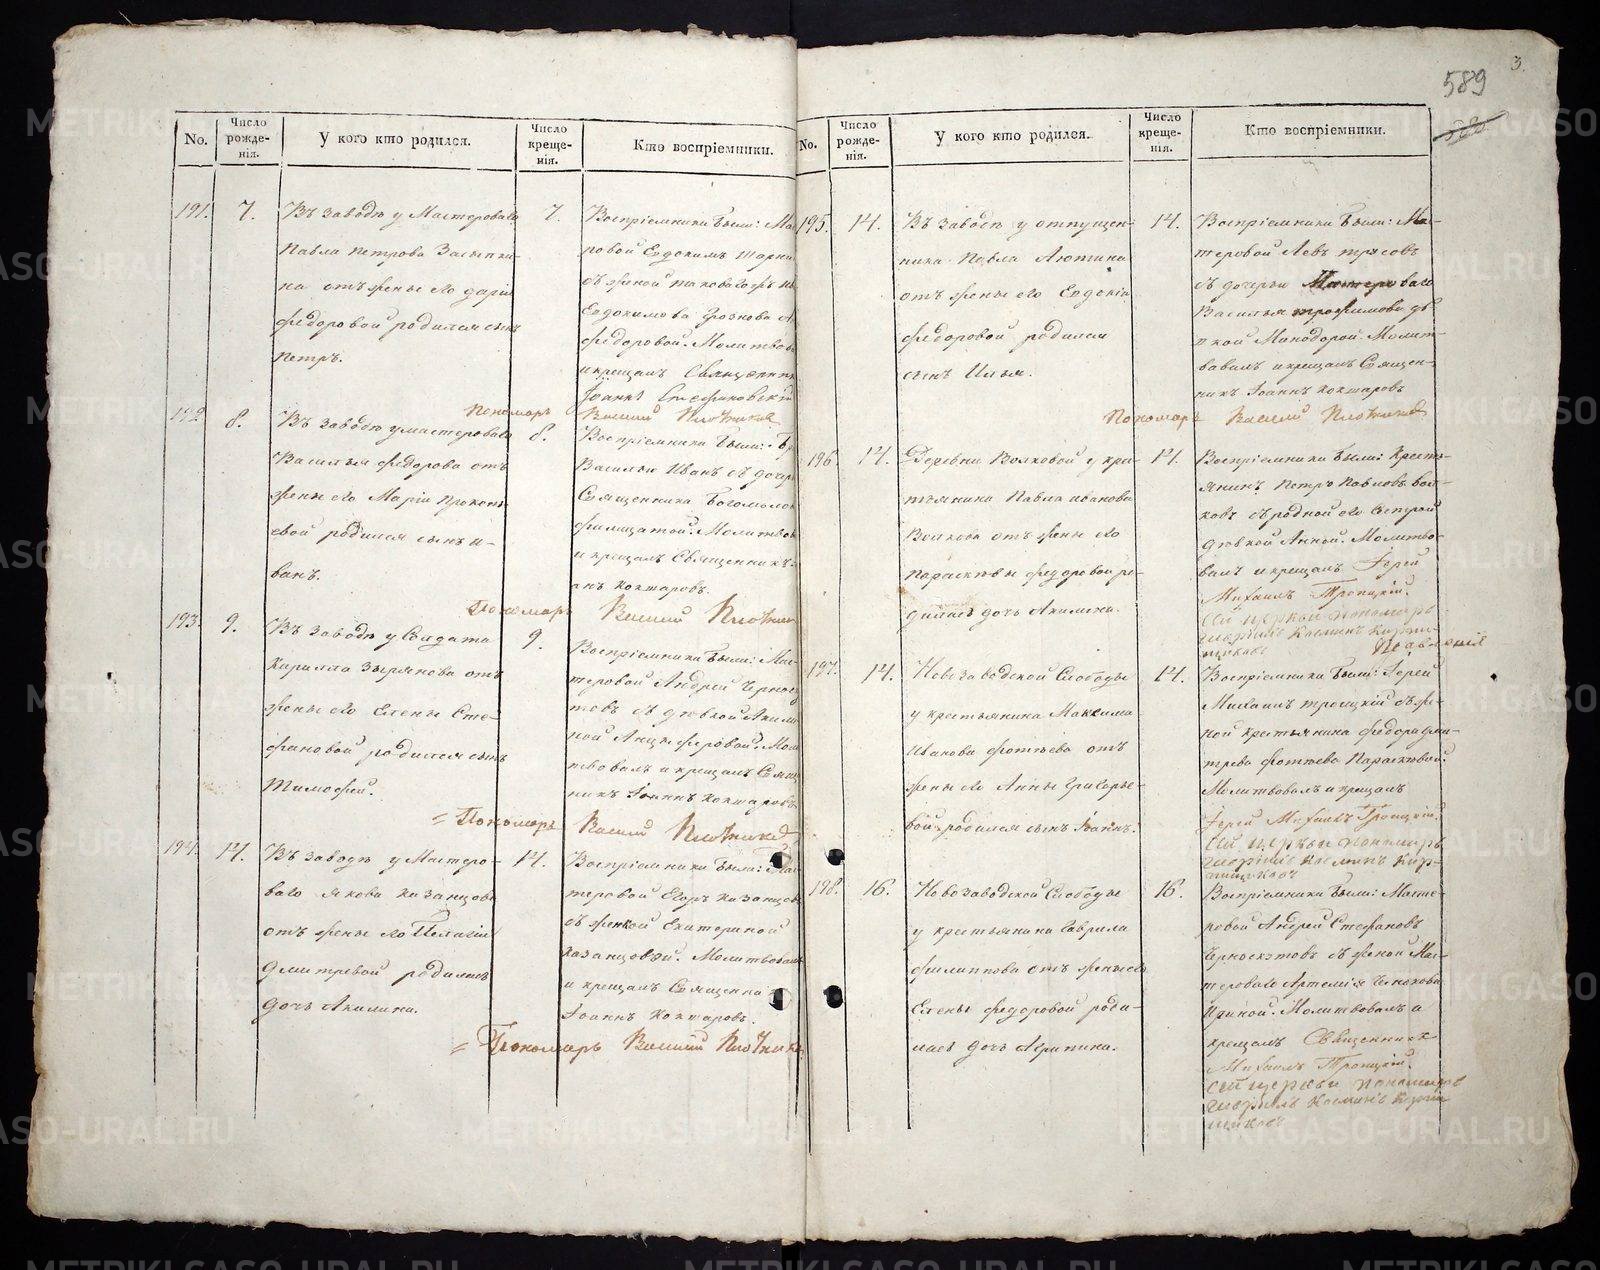 589
3
No.
Число рожде-нія.
У кого кто родился.
Число креще-нія.
Кто воспріемники.
191.
7.
Въ заводѣ у Мастероваго
Павла Петрова
на отъ жены его Даріи
Федоровой родился сынъ
Петръ.
7.
Воспріемники были: Мас
ровой Евдокимъ
съ женой таковаго жъ
Евдокимова
Федоровой. Молитвов
и крещалъ Священник
Іоаннъ Стефановскій
Пономарь Василий Плотников
192
8.
Въ заводѣ у мастероваго
Василья Федорова отъ
жены его Маріи Прокопь
евой родился сынъ И-
ванъ.
8.
Воспріемники были:
Василій Иванъ съ дочерь
Священника Богомолов
Филицатой. Молитвов
и крещалъ Священникъ
анъ Коктаровъ.
Пономарь Василий Плотник
193.
9.
Въ заводѣ у Солдата
Карилла Зырянова отъ
жены его Елены Сте-
фановой родился сынъ
Тимофей.
9.
Воспріемники были: Мас-
теровой Андрей Черноск
товъ съ дѣвкой Акили
ной Анциферовой. Мол
твовалъ и крещалъ Свящ
никъ Іоаннъ Коктаровъ
Пономарь Василий Плотников
194.
14.
Въ заводѣ у Мастеро-
ваго Якова Казанцова
отъ жены его Пелагіи
Дмитревой родилась
дочь Акилина.
14.
Воспріемники были: Мас
теровой Егоръ Казанцовъ
съ женкой Екатериной
Казанцовой. Молитвовалъ
и крещалъ Священник
Іоаннъ Коктаровъ.
Пономарь Василий Плотник
No.
Число рожде-нія.
У кого кто родился.
Число креще-нія.
Кто воспріемники.
195.
14.
Въ заводѣ у отпущен-
ника Павла Лютина
отъ жены его Евдокіи
Федоровой родился
сынъ Илья.
14.
Воспріемники были: Ма-
теровой Левъ Трясовъ
съ дочерью Мастероваго
Василья Трофимова дѣ
вкой Минодорой. Молит-
вавалъ и крещалъ Священ-
никъ Іоаннъ Коктаровъ
Пономарь Василий Плотников
196.
14.
Деревни Волковой у кре-
стьянина Павла Иванова
Волкова отъ жены его
Параскевы Федоровой ро-
дилась дочь Акилина.
14.
Воспріемники были: Кресть-
янинъ Петръ Павловъ Вол-
ковъ съ родной его сестрой
дѣвкой Анной. Молитво-
валъ и крещалъ Іерей
Михаилъ Троицкій.
сей церкви пономарь
Гавріилъ Косминъ Кирпи-
щиковъ
197.
14.
Новозаводской Слободы
у крестьянина Максима
Иванова Фотѣева отъ
жены его Анны Григорье-
вой родился сынъ Іоаннъ.
14.
Воспріемники были: Іерей
Михаилъ Троицкій съ же-
ной крестьянина Федора Дми-
трева Фотѣева Параскевой.
Молитвовалъ и крещалъ
Іерей Михаилъ Троицкій.
сей церкви пономарь
Гавріилъ Косминъ Кирп-
ищиковъ
198.
16.
Новозаводской Слободы
у крестьянина Гаврила
Филиппова отъ жены его
Елены Федоровой роди-
лась дочь Агрипина.
16.
Воспріемники были: Масте-
ровой Андрей Стефановъ
Черноскутовъ съ женой Мас-
тероваго Артемія
Ириной. Молитвовалъ и
крещалъ Священникъ
Михаилъ Троицкій.
сей церкви пономарь
Гавріилъ Косминъ Кирпи
щиковъ
METRIKI.GASO-URAL.RU